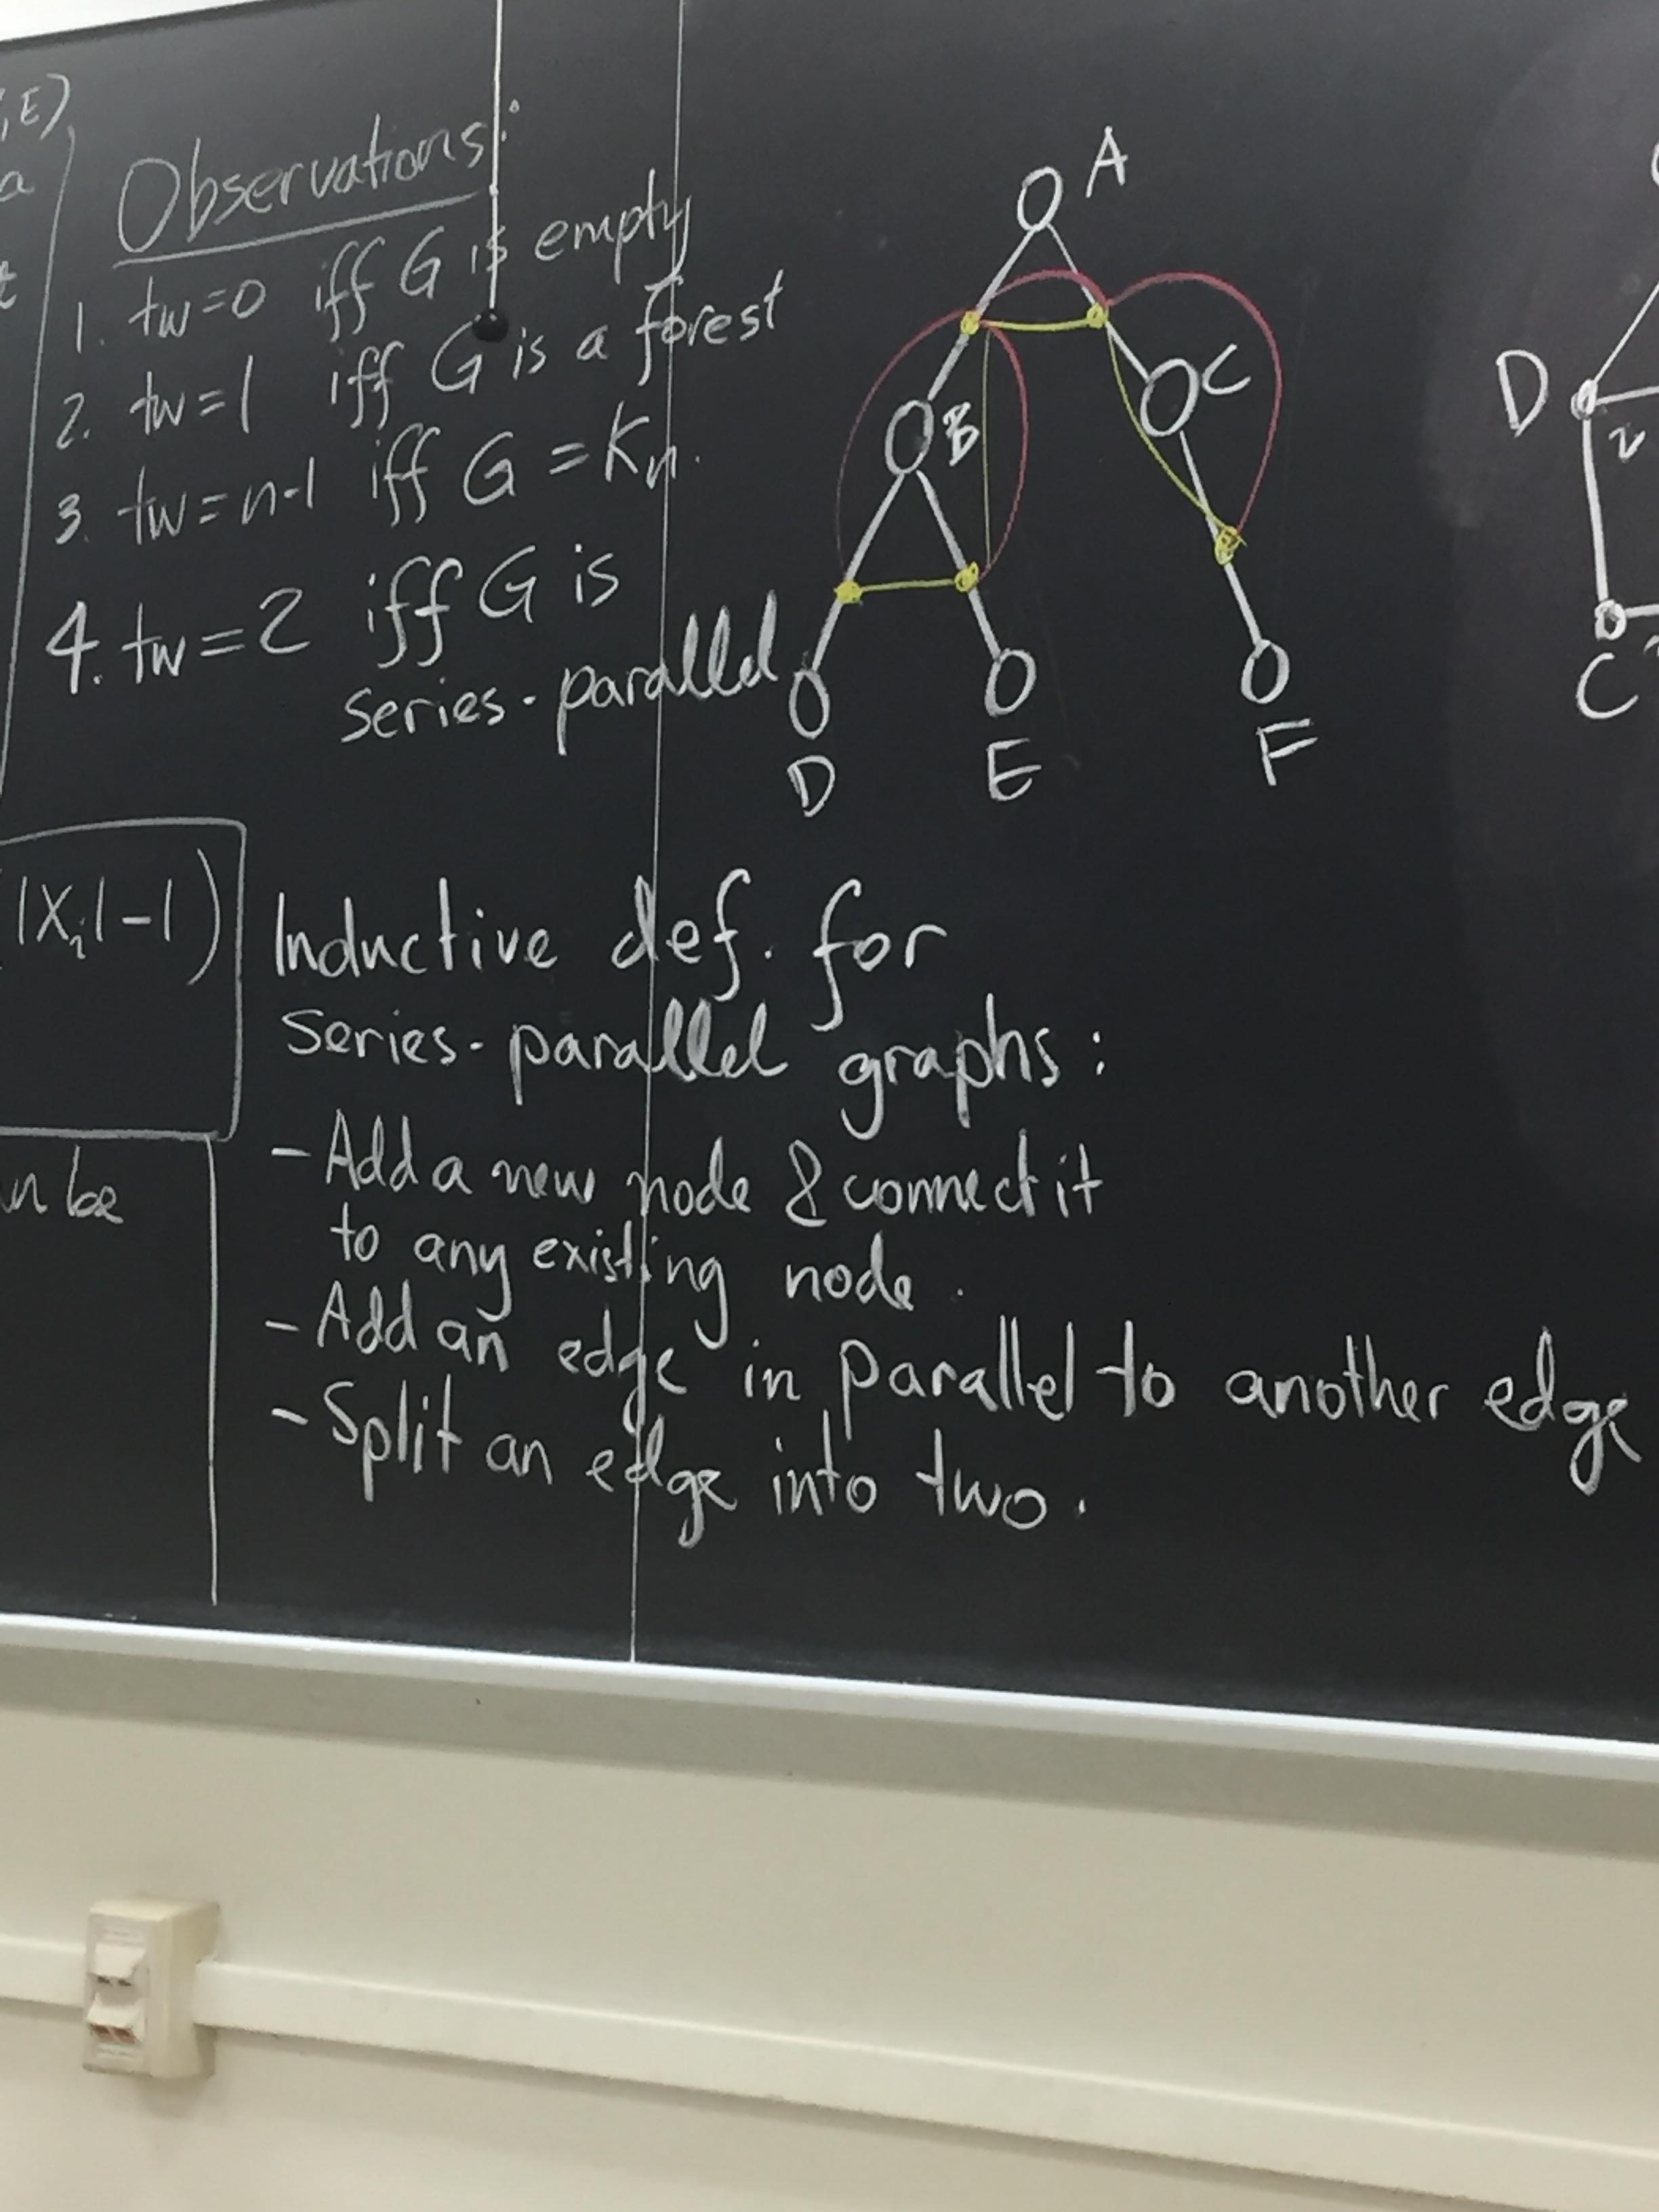 ,E)
a
Observations:
1. tw=0 iff G is empty
2. tw=1 iff G is a forest
3. tw=n-1 iff G = Kn.
4. tw=2 iff G is
series-parallel
A
B
C
D
E
F
D
2
C
|Xi|-1)
n be
Inductive def. for
series-parallel graphs:
- Add a new node & connect it
to any existing node.
- Add an edge in parallel to another edge
- Split an edge into two.